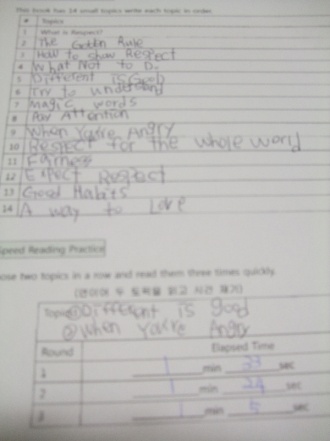 This book has 14 small topics write each topic in order.
# Topics
1 What is Respect?
2 The Golden Rule
3 How to show Respect
4 What Not to Do
5 Different is Good
6 Try to understand
7 Magic words
8 Pay Attention
9 When You're Angry
10 Respect for the whole world
11 Fairness
12 Expect Respect
13 Good Habits
14 A way to Live
Speed Reading Practice
ose two topics in a row and read them three times quickly.
(연이어 두 토픽을 읽고 시간 재기)
Topic ① Different is Good
② When You're Angry
Round Elapsed Time
1 1 min 33 sec
2 1 min 24 sec
3 1 min 5 sec